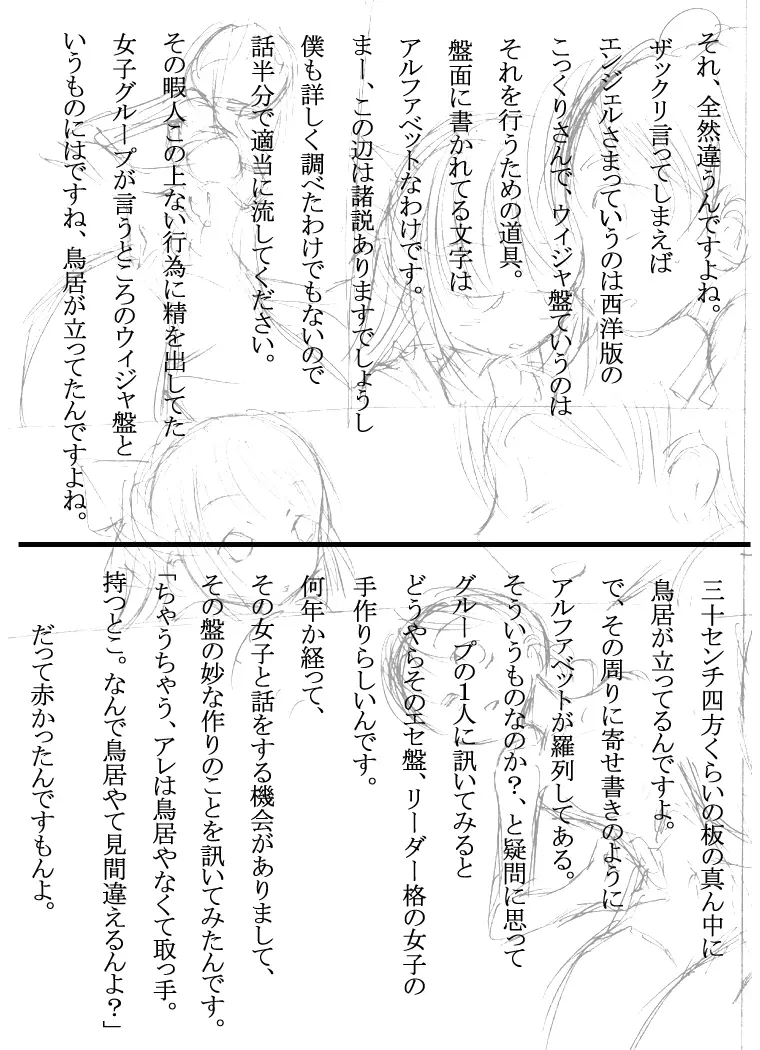 それ、全然違うんですよね。
ザックリ言ってしまえば
エンジェルさまっていうのは西洋版の
こっくりさんで、ウィジャ盤ていうのは
それを行うための道具。
盤面に書かれてる文字は
アルファベットなわけです。
まー、この辺は諸説ありますでしょうし
僕も詳しく調べたわけでもないので
話半分で適当に流してください。
その暇人この上ない行為に精を出してた
女子グループが言うところのウィジャ盤と
いうものにはですね、鳥居が立ってたんですよね。
三十センチ四方くらいの板の真ん中に
鳥居が立ってるんですよ。
で、その周りに寄せ書きのように
アルファベットが羅列してある。
そういうものなのか?、と疑問に思って
グループの1人に訊いてみると
どうやらそのエセ盤、リーダー格の女子の
手作りらしいんです。
何年か経って、
その女子と話をする機会がありまして、
その盤の妙な作りのことを訊いてみたんです。
「ちゃうちゃう、アレは鳥居やなくて取っ手。
持つとこ。なんで鳥居やて見間違えるんよ?」
だって赤かったんですもんよ。